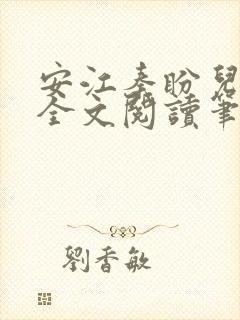 安江秦盼兒
全文閱讀筆
劉香敏